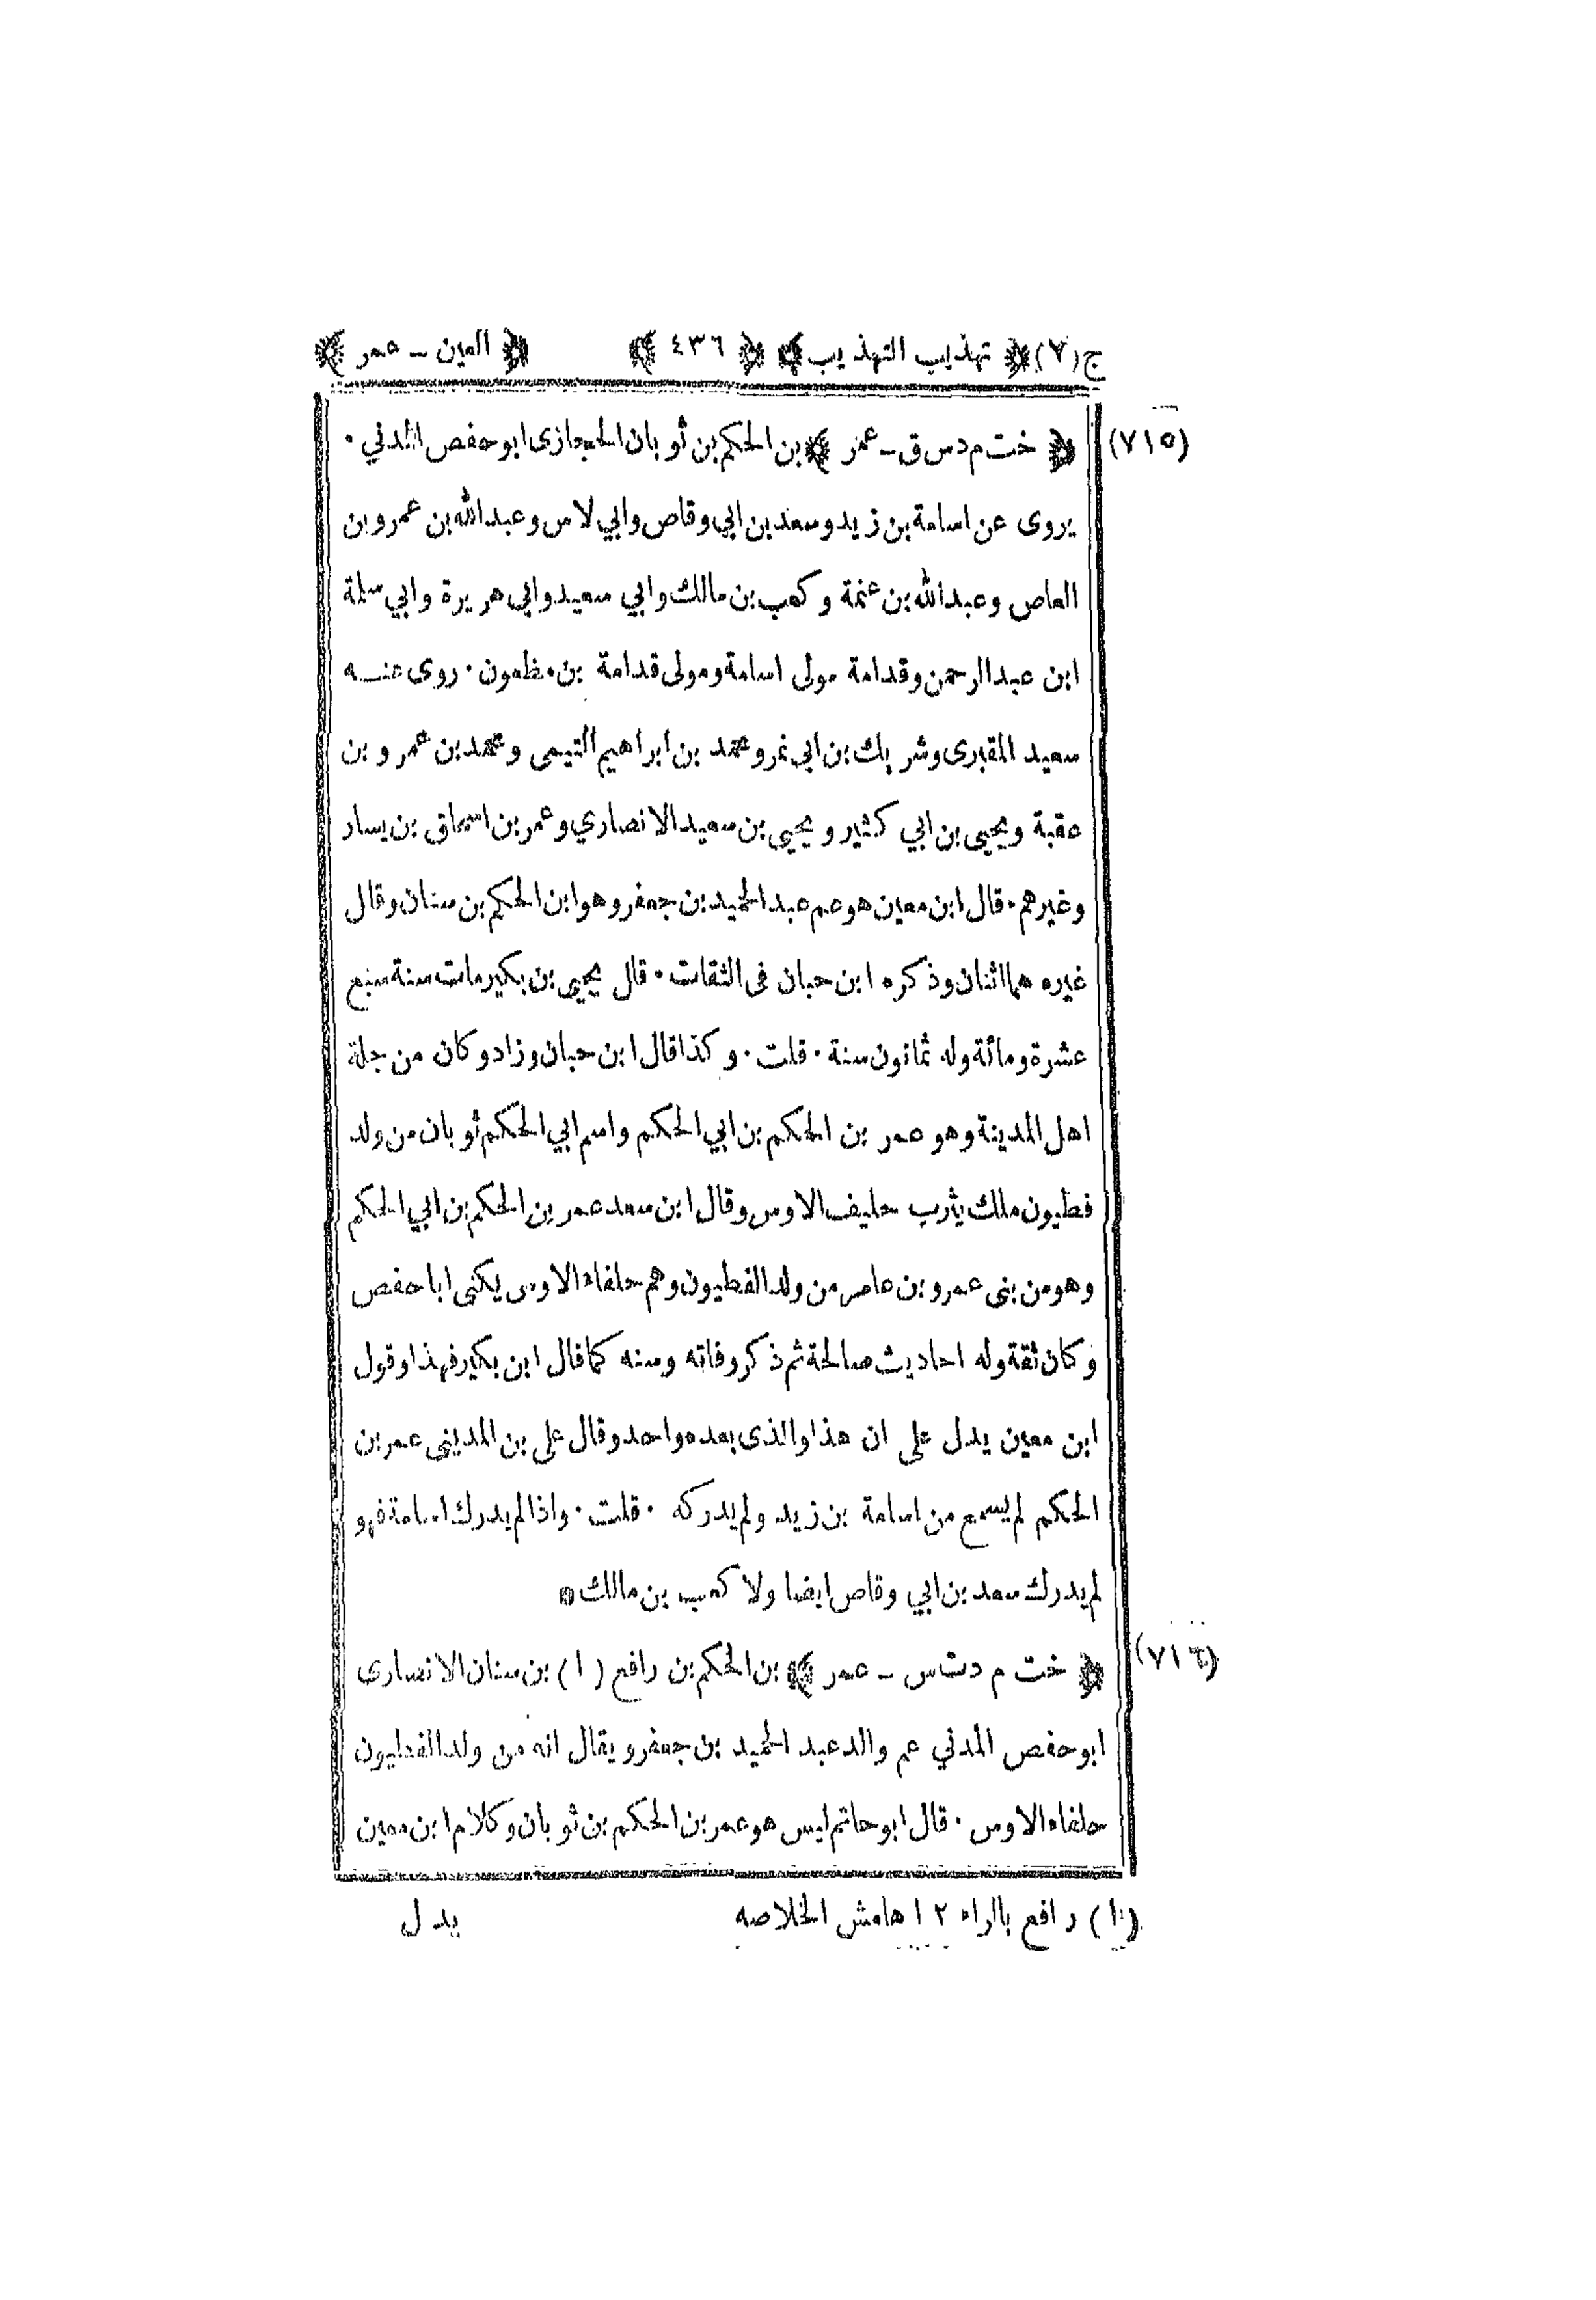 ج(٧) ﴿ تهذيب التهذيب ﴾ ﴿ ٤٣٦ ﴾ ﴿ العين ـ عمر ﴾
(٧١٥) ﴿ خت م د س ق ـ عمر ﴾ بن الحكم بن ثوبان الحجازى ابو حفص المدني ٠
يروى عن اسامة بن زيد وسعد بن ابي وقاص وابي لاس وعبدالله بن عمرو بن
العاص وعبدالله بن عنمة وكعب بن مالك وابي سعيد وابي هريرة وابي سلمة
ابن عبدالرحمن وقدامة مولى اسامة ومولى قدامة بن مظعون ٠ روى عنه
سعيد المقبرى وشريك بن ابي نمر ومحمد بن ابراهيم التيمى ومحمد بن عمرو بن
عقبة ويحيى بن ابي كثير ويحيى بن سعيد الانصاري وعمر بن اسحاق بن يسار
وغيرهم ٠ قال ابن معين هو عم عبد الحميد بن جعفر وهو ابن الحكم بن سنان وقال
غيره هما اثنان وذكره ابن حبان فى الثقات ٠ قال يحيى بن بكير مات سنة سبع
عشرة ومائة وله ثمانون سنة ٠ قلت ٠ وكذا قال ابن حبان وزاد وكان من جلة
اهل المدينة وهو عمر بن الحكم بن ابي الحكم واسم ابي الحكم ثوبان من ولد
فطيون ملك يثرب حليف الاوس وقال ابن سعد عمر بن الحكم بن ابي الحكم
وهو من بنى عمرو بن عامر من ولد الفطيون وهم حلفاء الاوس يكنى ابا حفص
وكان ثقة وله احاديث صالحة ثم ذكر وفاته وسنه كما قال ابن بكير فهذا وقول
ابن معين يدل على ان هذا والذى بعده واحد وقال على بن المدينى عمر بن
الحكم لم يسمع من اسامة بن زيد ولم يدركه ٠ قلت ٠ واذا لم يدرك اسامة فهو
لم يدرك سعد بن ابي وقاص ايضا ولا كعب بن مالك *
(٧١٦) ﴿ خت م د ت س ـ عمر ﴾ بن الحكم بن رافع (١) بن سنان الانصارى
ابو حفص المدني عم والد عبد الحميد بن جعفر ويقال انه من ولد الفطيون
حلفاء الاوس ٠ قال ابو حاتم ليس هو عمر بن الحكم بن ثوبان وكلام ابن معين
(١) رافع بالراء ١٢ هامش الخلاصه
يدل